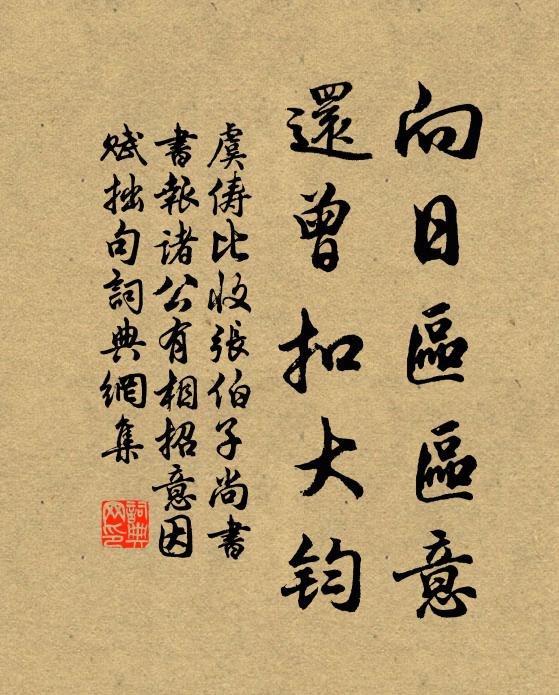 向日區區意
還曾扣大钧
虞儔比收張伯子尚書
書報諸公有相招意因
賦拙句詞典網集
詞典
网印